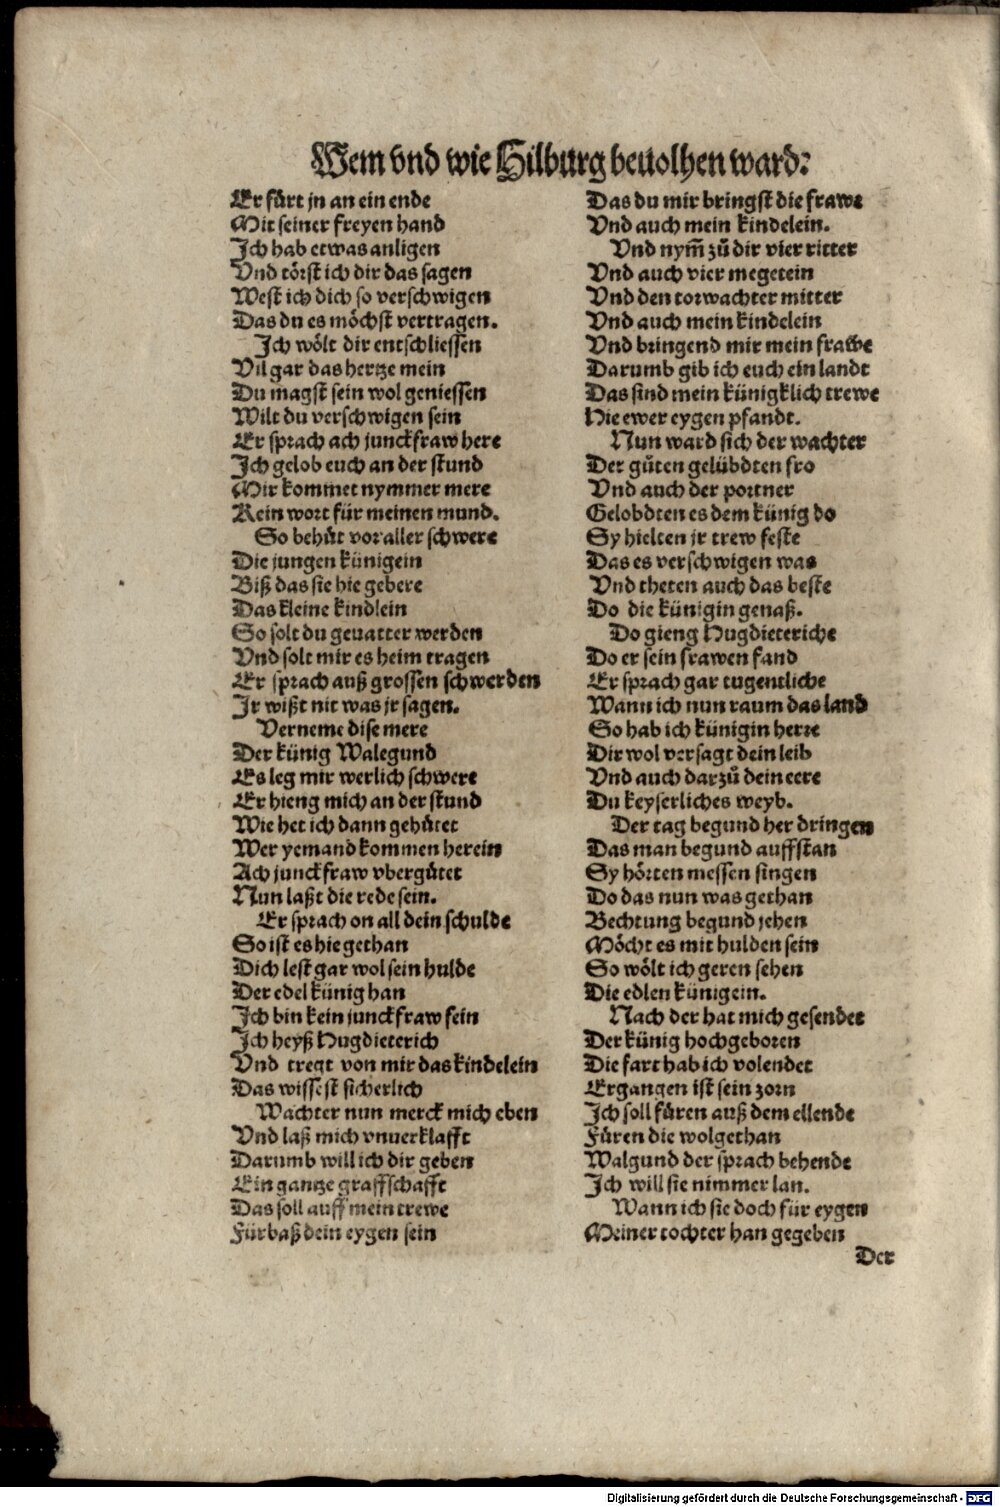 Wem vnd wie Hilburg beuolhen ward:
Er fürt jn an ein ende
Mit seiner freyen hand
Ich hab etwas anligen
Vnd törst ich dir das sagen
West ich dich so verschwigen
Das du es möchst vertragen.
Ich wölt dir entschliessen
Vil gar das hertze mein
Du magst sein wol geniessen
Wilt du verschwigen sein
Er sprach ach junckfraw here
Ich gelob euch an der stund
Mir kommet nymmer mere
Kein wort für meinen mund.
So behüt vor aller schwere
Die jungen künigein
Biß das sie hie gebere
Das kleine kindlein
So solt du geuatter werden
Vnd solt mir es heim tragen
Er sprach auß grossen schwerden
Ir wißt nit was jr sagen.
Verneme dise mere
Der künig Walegund
Es leg mir werlich schwere
Er hieng mich an der stund
Wie het ich dann gehütet
Wer yemand kommen herein
Ach junckfraw vbergütet
Nun laßt die rede sein.
Er sprach on all dein schulde
So ist es hie gethan
Dich lest gar wol sein hulde
Der edel künig han
Ich bin kein junckfraw fein
Ich heyß Hugdieterich
Vnd tregt von mir das kindelein
Das wissest sicherlich
Wachter nun merck mich eben
Vnd laß mich vnuerklafft
Darumb will ich dir geben
Ein gantze graffschafft
Das soll auff mein trewe
Fürbaß dein eygen sein
Das du mir bringst die frawe
Vnd auch mein kindelein.
Vnd nym̃ zů dir vier ritter
Vnd auch vier megetein
Vnd den torwachter mitter
Vnd auch mein kindelein
Vnd bringend mir mein frawe
Darumb gib ich euch ein landt
Das sind mein künigklich trewe
Hie ewer eygen pfandt.
Nun ward sich der wachter
Der gůten gelübdten fro
Vnd auch der portner
Gelobdten es dem künig do
Sy hielten jr trew feste
Das es verschwigen was
Vnd theten auch das beste
Do die künigin genaß.
Do gieng Hugdieteriche
Do er sein frawen fand
Er sprach gar tugentliche
Wann ich nun raum das land
So hab ich künigin herre
Dir wol versagt dein leib
Vnd auch darzů dein eere
Du keyserliches weyb.
Der tag begund her dringen
Das man begund auffstan
Sy hörten messen singen
Do das nun was gethan
Bechtung begund jehen
Möcht es mit hulden sein
So wölt ich geren sehen
Die edlen künigein.
Nach der hat mich gesendet
Der künig hochgeboren
Die fart hab ich volendet
Ergangen ist sein zorn
Ich soll füren auß dem ellende
Füren die wolgethan
Walgund der sprach behende
Ich will sie nimmer lan.
Wann ich sie doch für eygen
Meiner tochter han gegeben
Der
Digitalisierung gefördert durch die Deutsche Forschungsgemeinschaft - DFG